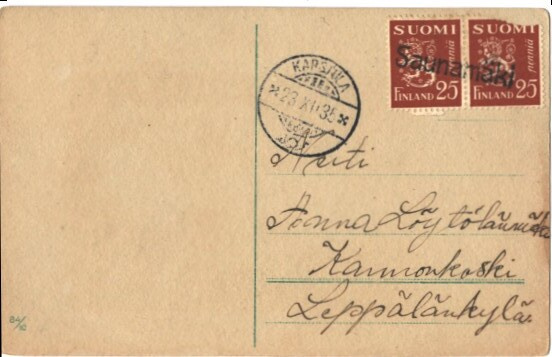 SUOMI
SUOMI
Saunamäki
penniä
penniä
FINLAND 25
FINLAND 25
KARSTULA
23.XII.35
Neiti
Anna Löytölänmäki
Kannonkoski
Leppälänkylä